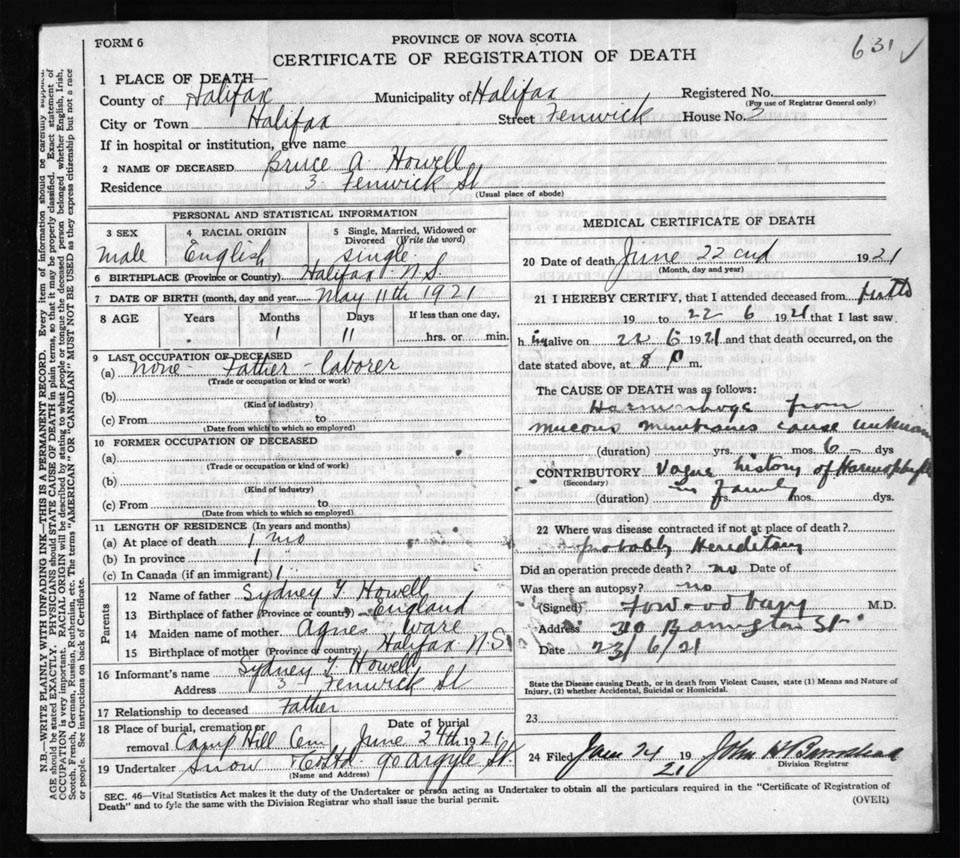 FORM 6
PROVINCE OF NOVA SCOTIA
631 ✓
CERTIFICATE OF REGISTRATION OF DEATH
1 PLACE OF DEATH—
County of Halifax Municipality of Halifax Registered No.
(For use of Registrar General only)
City or Town Halifax Street Fenwick House No. 3
If in hospital or institution, give name
2 NAME OF DECEASED Bruce A. Howell
Residence 3 Fenwick St
(Usual place of abode)
PERSONAL AND STATISTICAL INFORMATION
3 SEX 4 RACIAL ORIGIN 5 Single, Married, Widowed or Divorced (Write the word)
Male English single
6 BIRTHPLACE (Province or Country) Halifax N.S.
7 DATE OF BIRTH (month, day and year) May 11th 1921
8 AGE Years Months Days If less than one day,
1 11 hrs. or min.
9 LAST OCCUPATION OF DECEASED
(a) None - Father - laborer
(Trade or occupation or kind or work)
(b)
(Kind of industry)
(c) From to
(Date from which to which so employed)
10 FORMER OCCUPATION OF DECEASED
(a)
(Trade or occupation or kind of work)
(b)
(Kind of industry)
(c) From to
(Date from which to which so employed)
11 LENGTH OF RESIDENCE (In years and months)
(a) At place of death 1 mo
(b) In province 1
(c) In Canada (if an immigrant) 1
Parents
12 Name of father Sydney Howell
13 Birthplace of father (Province or country) England
14 Maiden name of mother Agnes Ware
15 Birthplace of mother (Province or country) Halifax N.S.
16 Informant's name Sydney Howell
Address 3 Fenwick St
17 Relationship to deceased Father
18 Place of burial, cremation or removal Camp Hill Cem Date of burial June 24th 1921
19 Undertaker Snow & Co Ltd. 90 Argyle St.
(Name and Address)
MEDICAL CERTIFICATE OF DEATH
20 Date of death June 22nd 1921
(Month, day and year)
21 I HEREBY CERTIFY, that I attended deceased from birth
19 to 22 6 1921 that I last saw
h im alive on 22 6 1921 and that death occurred, on the
date stated above, at 8 P m.
The CAUSE OF DEATH was as follows:
Haemorrhage from
mucous membranes cause unknown
(duration) yrs. mos. 6 dys
CONTRIBUTORY Vague history of Haemophilia
(Secondary)
in family
(duration) yrs. mos. dys.
22 Where was disease contracted if not at place of death?
probably Hereditary
Did an operation precede death? no Date of
Was there an autopsy? no
(Signed) M.D.
Address Barrington St.
Date 23/6/21
State the Disease causing Death, or in death from Violent Causes, state (1) Means and Nature of
Injury, (2) whether Accidental, Suicidal or Homicidal.
23
24 Filed 24 1921 John
Division Registrar
SEC. 46—Vital Statistics Act makes it the duty of the Undertaker or person acting as Undertaker to obtain all the particulars required in the "Certificate of Registration of
Death" and to fyle the same with the Division Registrar who shall issue the burial permit.
(OVER)
N.B.—WRITE PLAINLY WITH UNFADING INK—THIS IS A PERMANENT RECORD. Every item of information should be carefully supplied.
AGE should be stated EXACTLY. PHYSICIANS should STATE CAUSE OF DEATH in plain terms, so that it may be properly classified. Exact statement of
OCCUPATION is very important. RACIAL ORIGIN will be described by stating to what people or tongue the deceased person belonged whether English, Irish,
Scotch, French, German, Russian, Ruthenian, etc. The terms "AMERICAN" or "CANADIAN" MUST NOT BE USED as they express citizenship but not a race
or people. See instructions on back of Certificate.